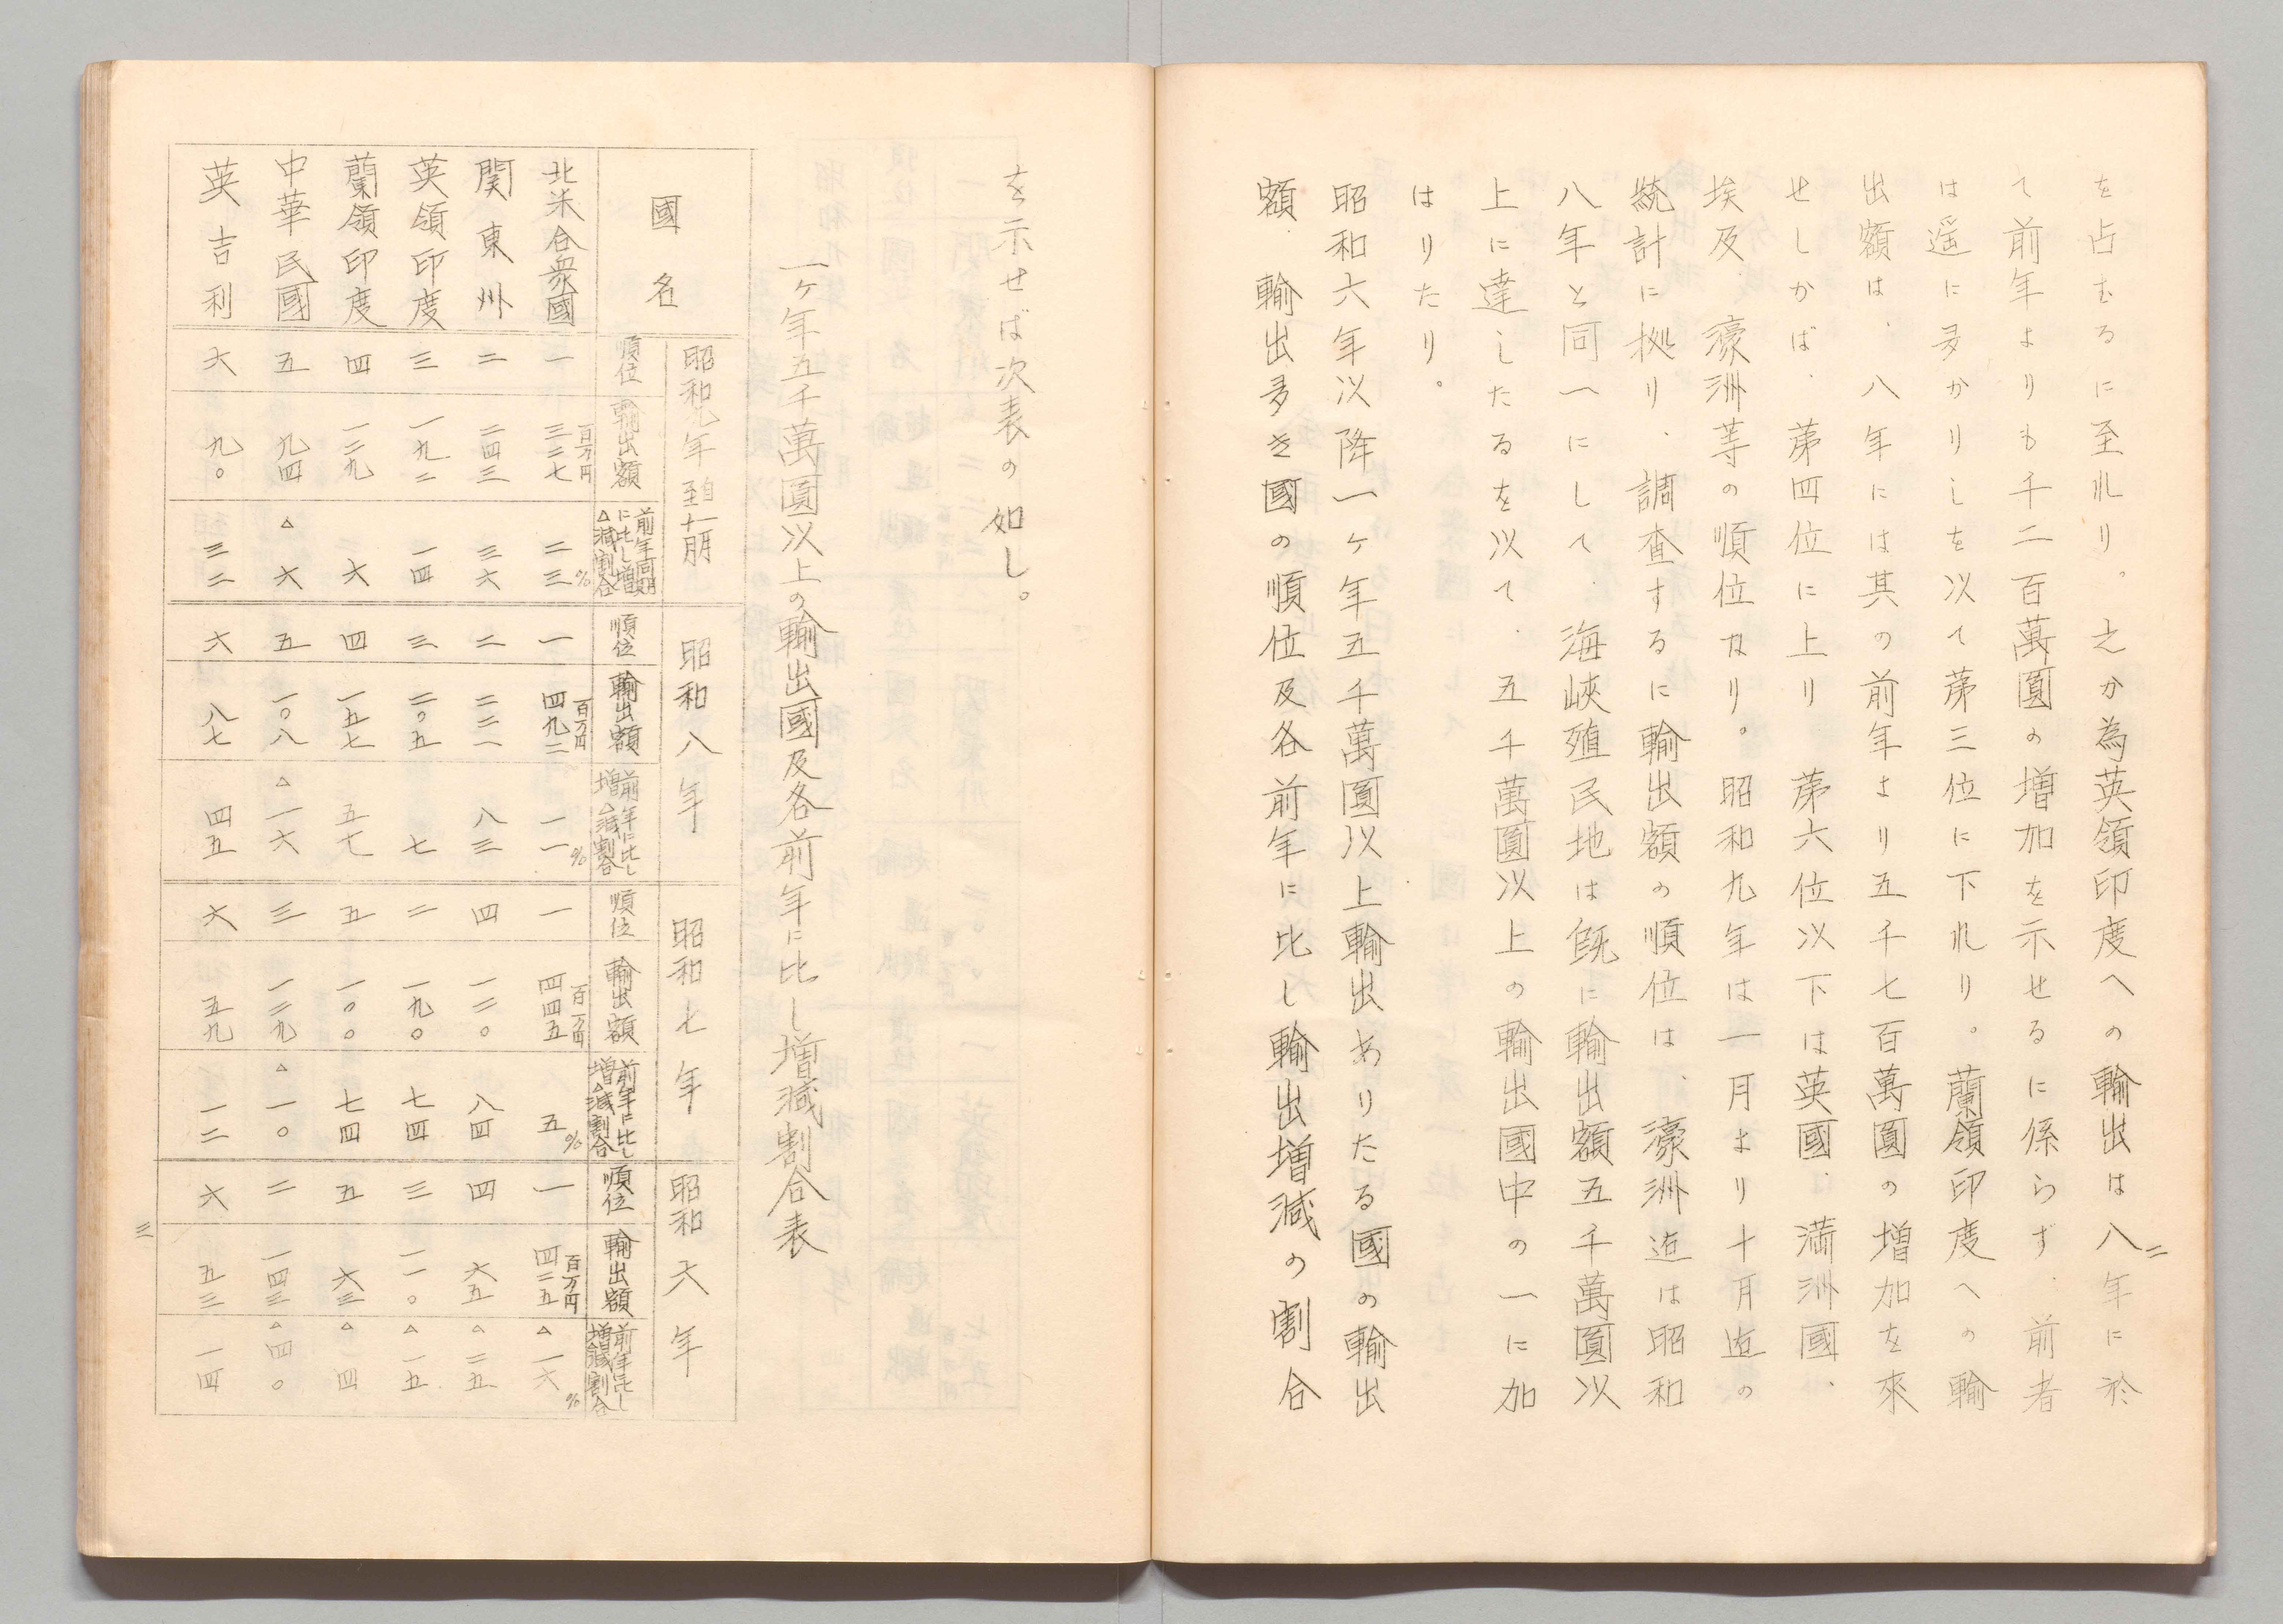 二
を占むるに至れり。之か為英領印度への輸出は八年に於
て前年よりも千二百萬圓の増加を示せるに係らず、前者
は遥に多かりしを以て第三位に下れり。蘭領印度への輸
出額は、八年には其の前年より五千七百萬圓の増加を來
せしかば、第四位に上り第六位以下は英國、満洲國、
埃及、濠洲等の順位なり。昭和九年は一月より十月迄の
統計に拠り、調査するに輸出額の順位は、濠洲迄は昭和
八年と同一にして、海峽殖民地は既に輸出額五千萬圓以
上に達したるを以て、五千萬圓以上の輸出國中の一に加
はりたり。
昭和六年以降一ヶ年五千萬圓以上輸出ありたる國の輸出
額、輸出多き國の順位及各前年に比し輸出増減の割合
を示せば次表の如し。
一ヶ年五千萬圓以上の輸出國及各前年に比し増減割合表
國名 昭和九年 自一月至十月 昭和八年 昭和七年 昭和六年
順位 輸出額 前年同期に比し増△減割合 順位 輸出額 前年に比し増△減割合 順位 輸出額 前年に比し増△減割合 順位 輸出額 前年に比し増△減割合
百万円 % 百万円 % 百万円 % 百万円 %
北米合衆國 一 三二七 二三 一 四九二 一一 一 四四五 五 一 四二五 △一六
関東州 二 二四三 三六 二 二二一 八三 四 一二〇 八四 四 六五 △二五
英領印度 三 一九二 一四 三 二〇五 七 二 一九〇 七四 三 一一〇 △一五
蘭領印度 四 一二九 六 四 一五七 五七 五 一〇〇 七四 五 六三 △四
中華民國 五 九四 △六 五 一〇八 △一六 三 一二九 △一〇 二 一四三 △四〇
英吉利 六 九〇 三二 六 八七 四五 六 五九 一二 六 五三 一四
三